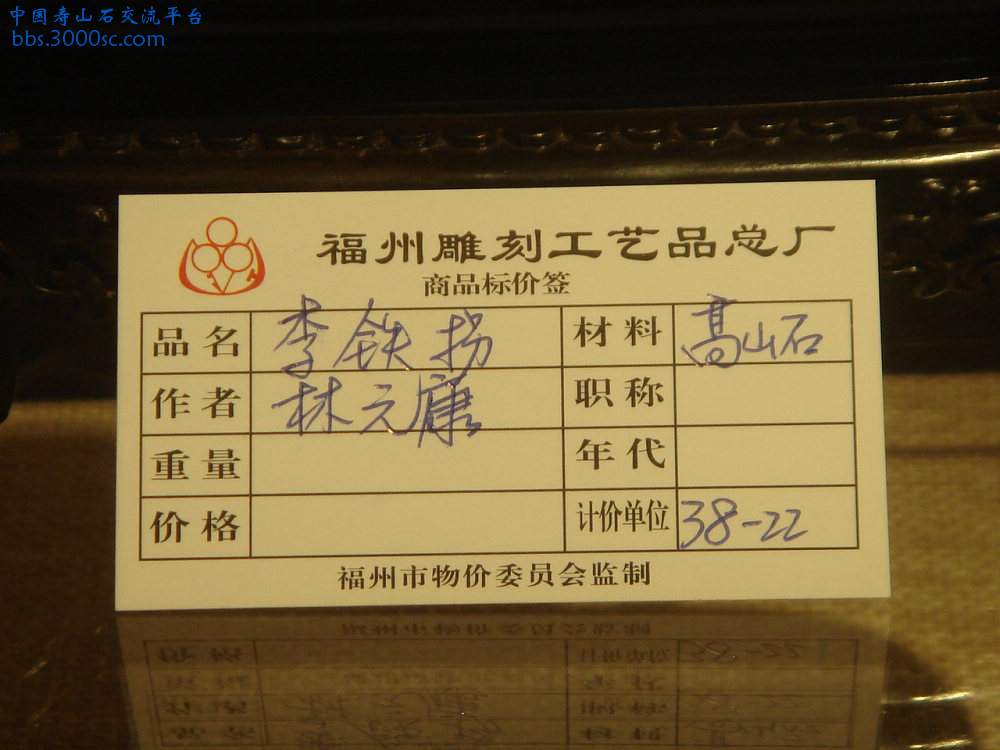 中国寿山石交流平台
bbs.3000sc.com
福州雕刻工艺品总厂
商品标价签
品名 李铁拐 材料 高山石
作者 林元康 职称
重量 年代
价格 计价单位 38-22
福州市物价委员会监制